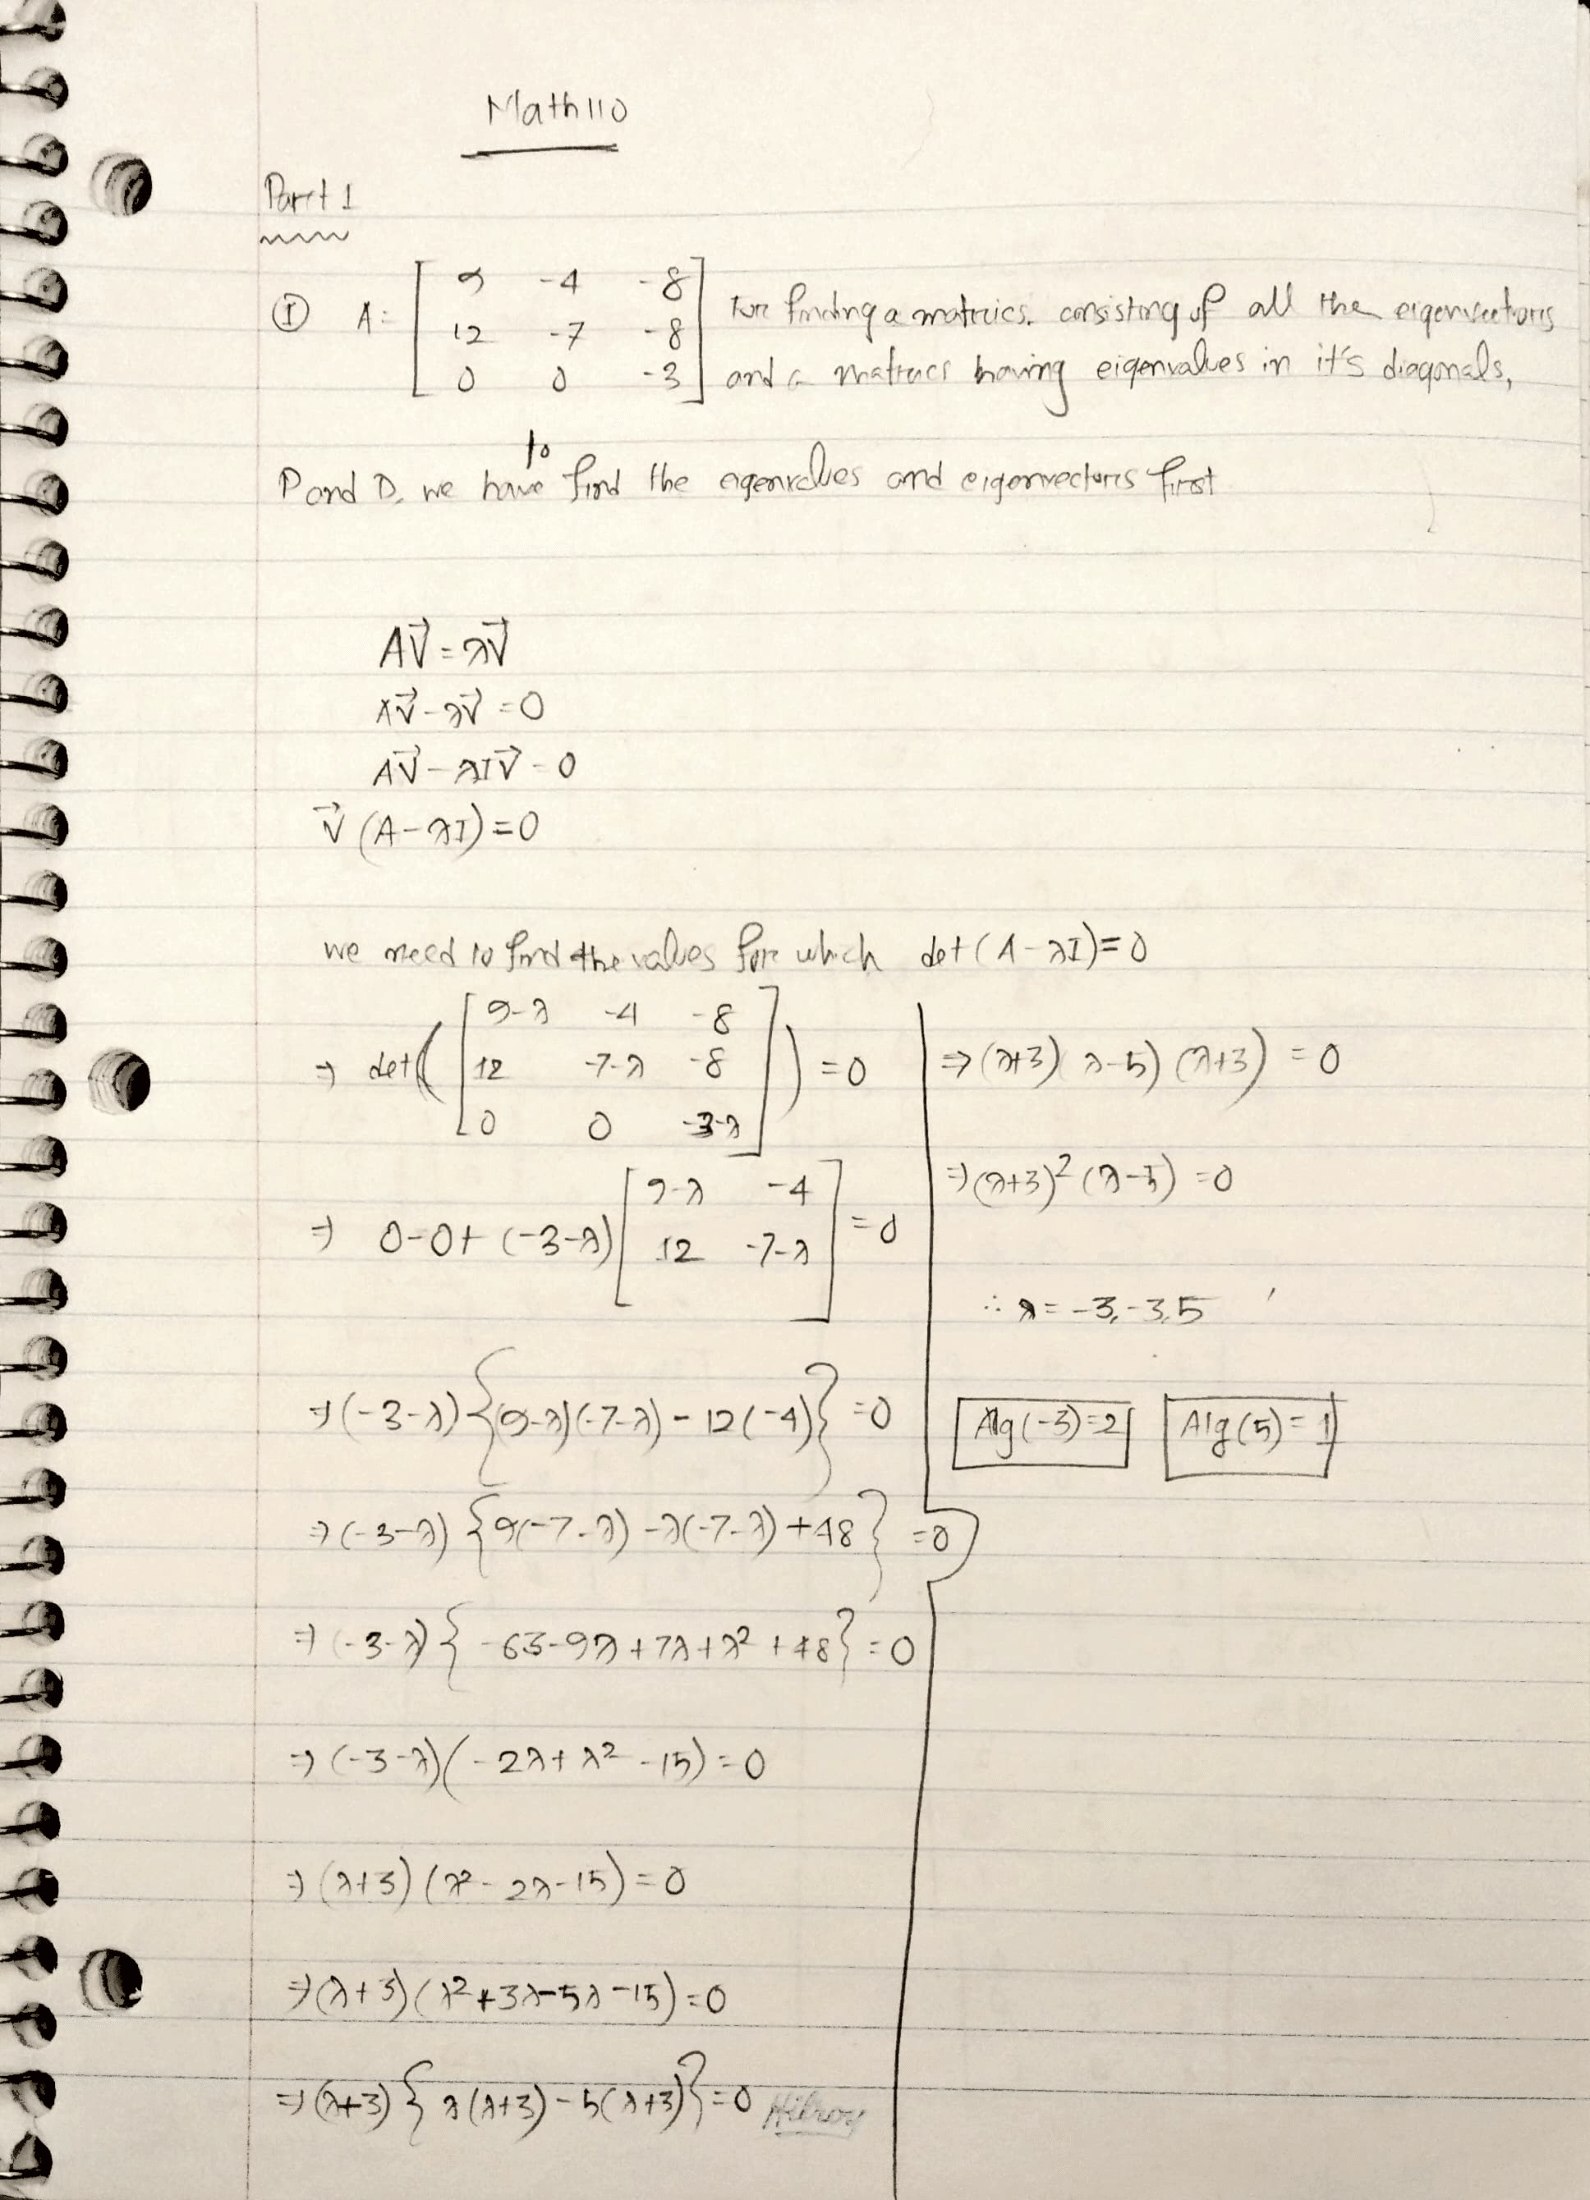 Math 110
Part 1
① A = [ 9 -4 -8
12 -7 -8
0 0 -3 ]
For finding a matrics. consisting of all the eigenvectors
and a matracs having eigenvalues in it's diagonals,
P and D, we have to find the eigenvalues and eigenvectors first
AV⃗ = λV⃗
AV⃗ - λV⃗ = 0
AV⃗ - λIV⃗ = 0
V⃗ (A - λI) = 0
we need to find the values for which det(A - λI) = 0
⇒ det( [ 9-λ -4 -8
12 -7-λ -8
0 0 -3-λ ] ) = 0
⇒ 0-0+ (-3-λ) [ 9-λ -4
12 -7-λ ] = 0
⇒ (-3-λ) {(9-λ)(-7-λ) - 12(-4)} = 0
⇒ (-3-λ) {9(-7-λ) -λ(-7-λ) +48} = 0
⇒ (-3-λ) { -63-9λ+7λ+λ² +48} = 0
⇒ (-3-λ)(-2λ+λ²-15) = 0
⇒ (λ+3) (λ²-2λ-15) = 0
⇒ (λ+3) (λ²+3λ-5λ-15) = 0
⇒ (λ+3) { λ(λ+3) -5(λ+3)} = 0
Hilroy
⇒ (λ+3) λ-5) (λ+3) = 0
⇒ (λ+3)² (λ-5) = 0
∴ λ = -3, -3, 5
Alg(-3)=2 Alg(5)=1